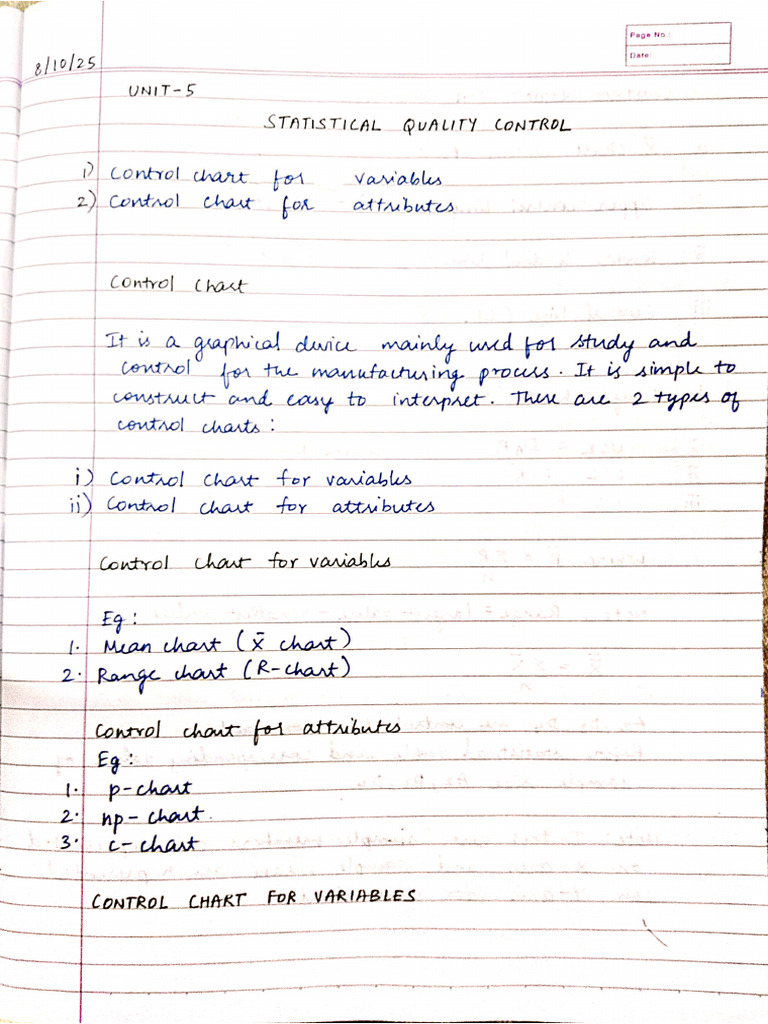 Page No.:
Date:
8/10/25
UNIT-5
STATISTICAL QUALITY CONTROL
1) Control chart for variables
2) Control chart for attributes
Control Chart
It is a graphical device mainly used for study and
control for the manufacturing process. It is simple to
construct and easy to interpret. There are 2 types of
control charts:
i) Control chart for variables
ii) Control chart for attributes
Control chart for variables
Eg:
1. Mean chart (x̄ chart)
2. Range chart (R-chart)
Control chart for attributes
Eg:
1. p-chart
2. np-chart.
3. c-chart
CONTROL CHART FOR VARIABLES